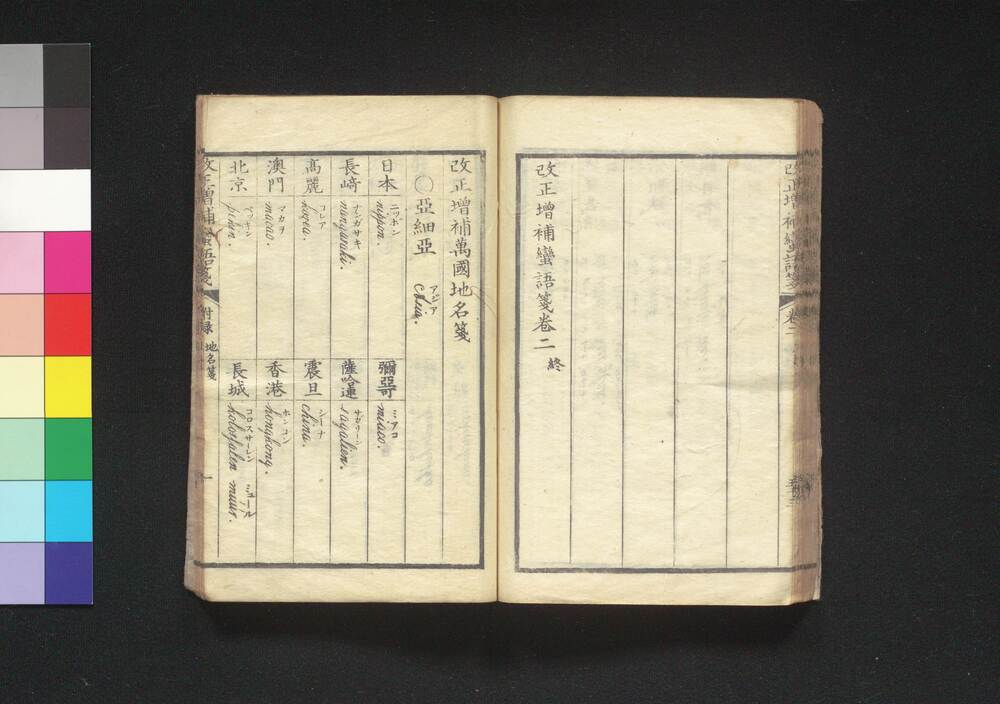 改正增補蠻語箋 卷二
改正增補蠻語箋卷二 終
改正增補萬國地名箋
○亞細亞 アジア
日本 ニッポン nippon.
彌亞哥 ミアコ miaco.
長崎 ナンガサキ nangasaki.
薩哈連 サガリーン sagalien.
高麗 コレア korea.
震旦 シーナ china.
澳門 マカヲ macao.
香港 ホンコン hongkong.
北京 pekin.
長城 コロスサーレン ミュール kolossalen muur.
改正增補蠻語箋 附録 地名箋 一